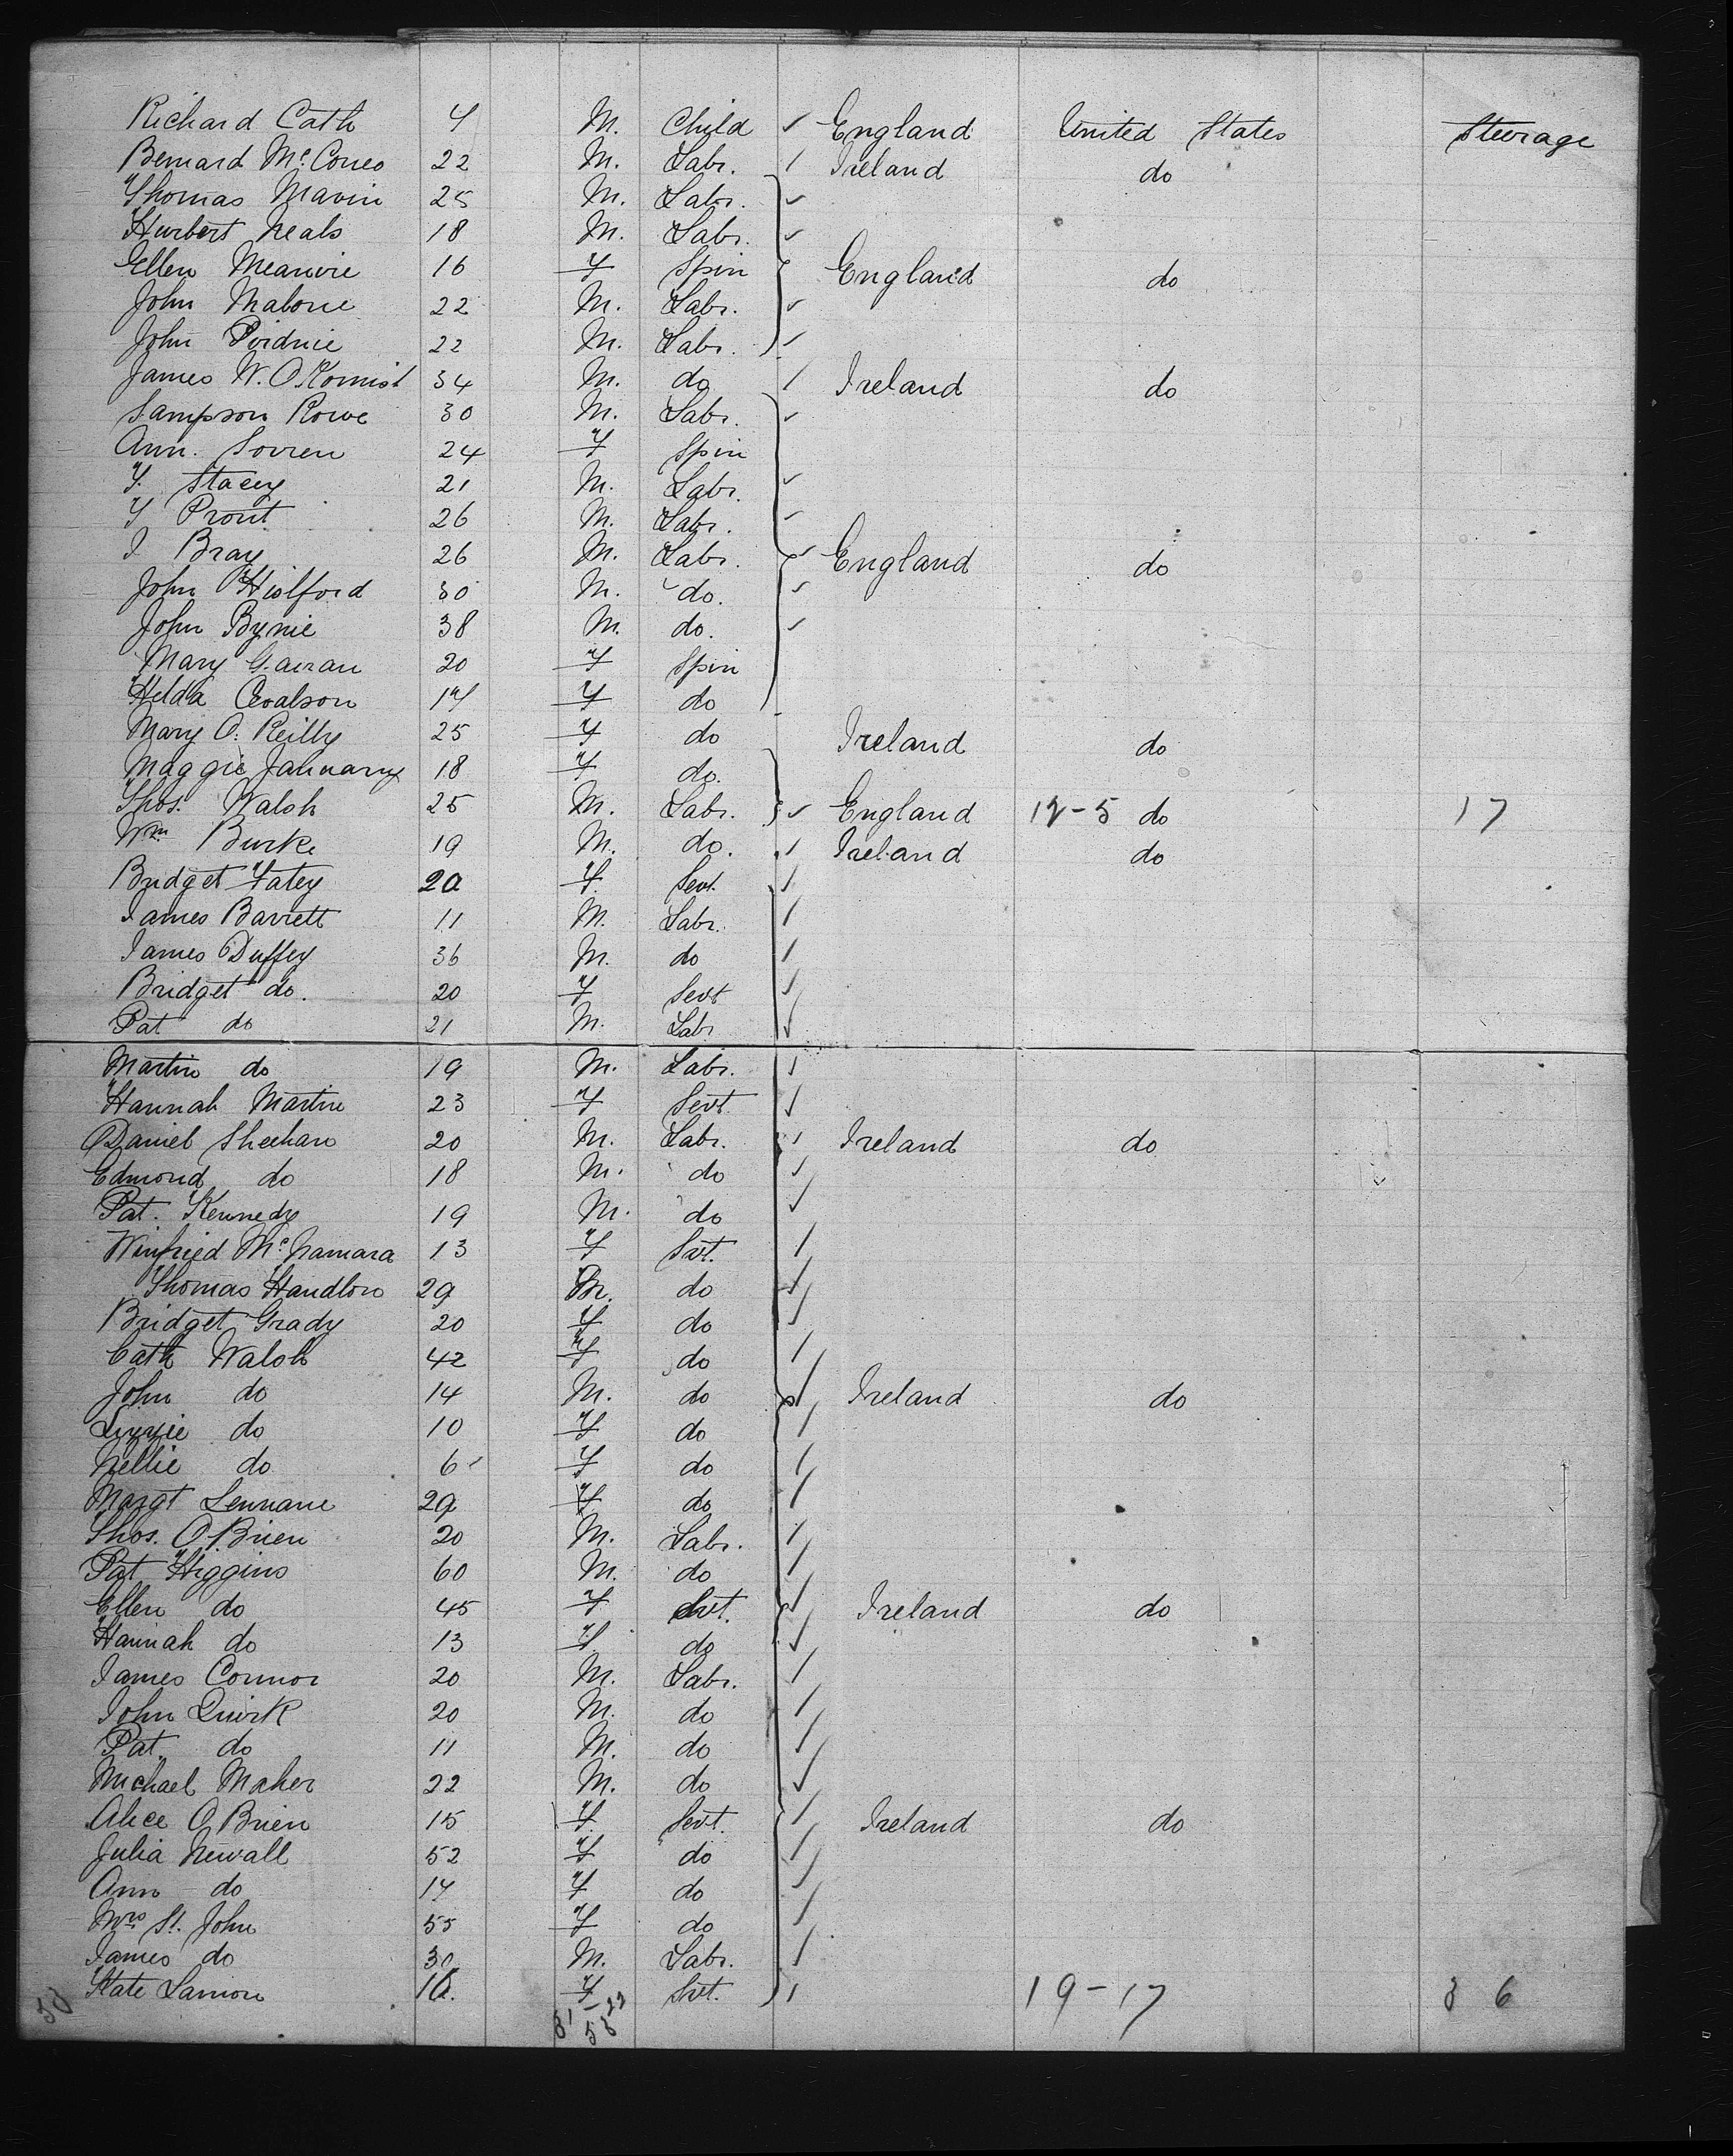 Richard Cath 4 M. Child England United States Steerage
Bernard Mc 22 M. Labr. Ireland do
Thomas Mavin 25 M. Labr.
Hurbert Neals 18 M. Labr.
Ellen 16 F Spin England do
John Malone 22 M. Labr.
John 22 M. Labr.
James W. O 34 M. do Ireland do
Sampson Rowe 30 M. Labr.
Ann. 24 F Spin
T. Stacey 21 M. Labr.
T Prout 26 M. Labr.
J Bray 26 M. Labr. England do
John 30 M. do.
John Byrne 38 M. do.
Mary 20 F Spin
Helda 17 F do
Mary O. Reilly 25 F do Ireland do
Maggie January 18 F do.
Thos. Walsh 25 M. Labr. England 12-5 do 17
Wm Burke 19 M. do. Ireland do
Bridget Fatey 20 F. Sevt.
James Barrett 11 M. Labr.
James Duffey 36 M. do
Bridget do. 20 F Sevt
Pat do 21 M. Labr
Martin do 19 M. Labr.
Hannah Martin 23 F Sevt.
Daniel Sheehan 20 M. Labr. Ireland do
Edmond do 18 M. do
Pat. Kennedy 19 M. do
Winfried McNamara 13 F Svt.
Thomas Handlon 29 M. do
Bridget Grady 20 F do
Cath Walsh 42 F do
John do 14 M. do Ireland do
Lizzie do 10 F do
Nellie do 6 F do
Margt Lennane 29 F do
Thos. O'Brien 20 M. Labr.
Pat Higgins 60 M. do
Ellen do 45 F Svt. Ireland do
Hannah do 13 F. do
James Connor 20 M. Labr.
John Quirk 20 M. do
Pat. do 11 M. do
Michael Maher 22 M. do
Alice O'Brien 15 F. Sevt. Ireland do
Julia Newall 52 F do
Ann do 14 F do
Mrs St. John 55 F do
James do 30 M. Labr.
Kate 16. F Svt. 19-17 36